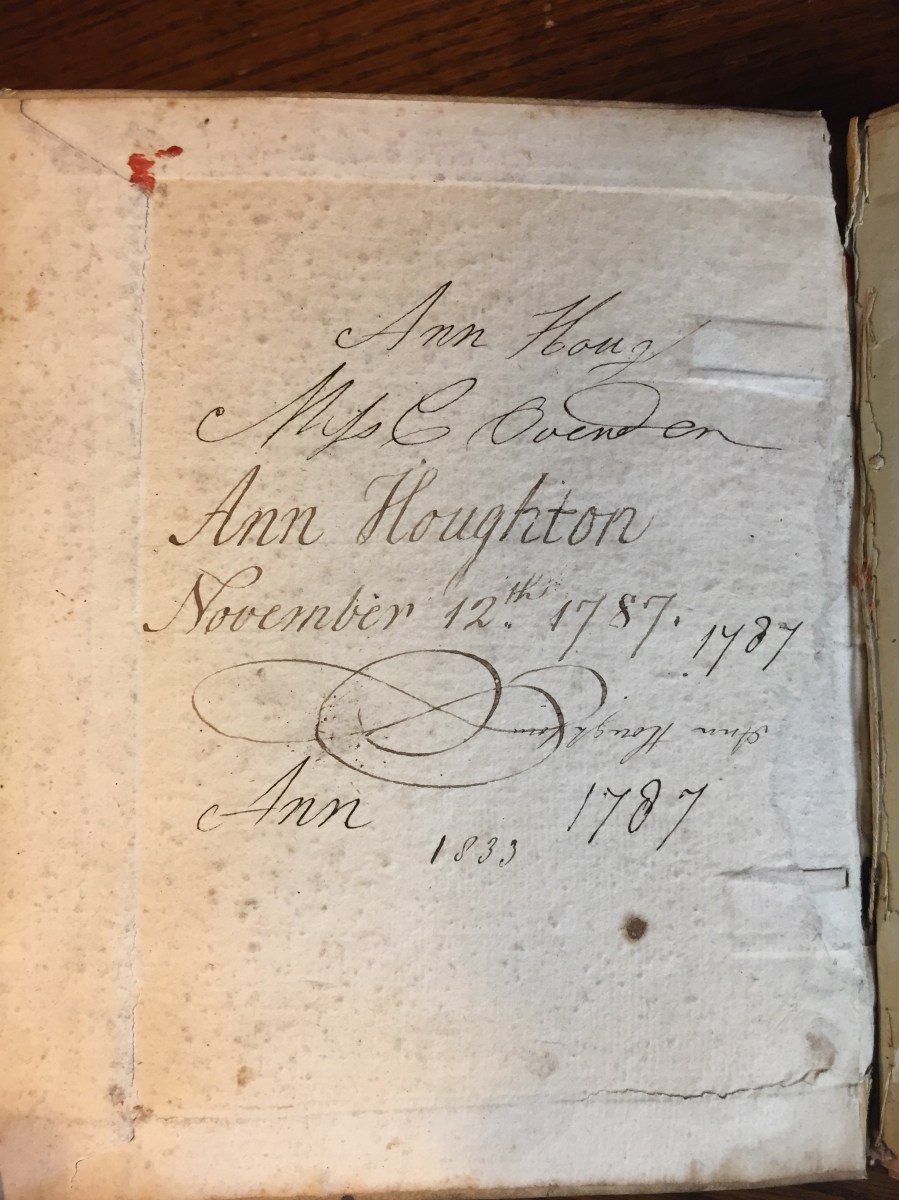 Ann Houg
Miſs C Ovenden
Ann Houghton
November 12.th 1787.
1787
Ann Houghton
Ann 1787
1833